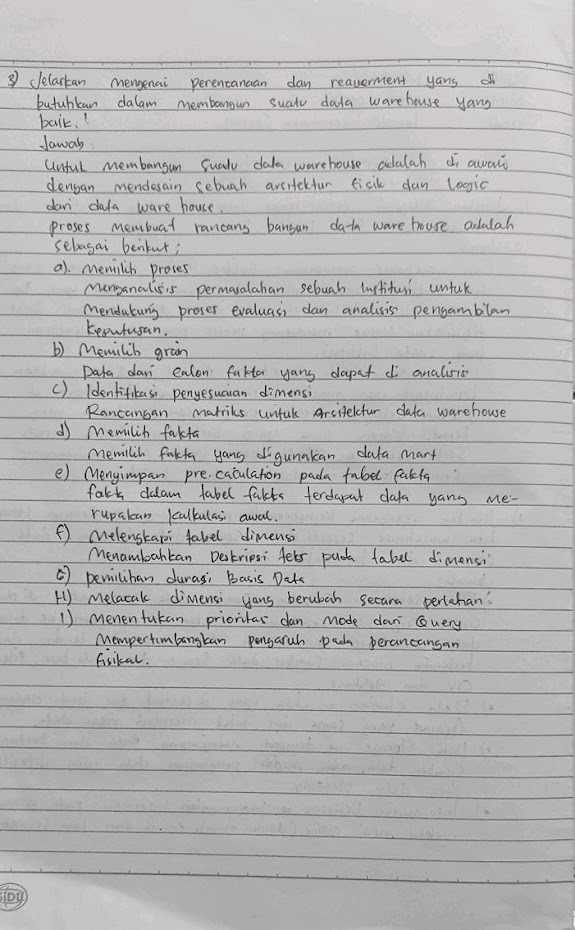 3) Jelaskan mengenai perencanaan dan reauerment yang di
butuhkan dalam membangun suatu data warehouse yang
baik.!
Jawab:
Untuk membangun suatu data warehouse adalah di awali
dengan mendesain sebuah arsitektur fisik dan logic
dari data ware house.
proses membuat rancang bangun data ware house adalah
sebagai berikut;
a). memilih proses
Menganalisis permasalahan sebuah Institusi untuk
Mendukung proses evaluasi dan analisis pengambilan
keputusan.
b) Memilih grain
Data dari calon fakta yang dapat di analisis
c) Identifikasi penyesuaian dimensi
Rancangan matriks untuk Arsitektur data warehouse
d) Memilih fakta
Memilih fakta yang digunakan data mart
e) Menyimpan pre-caculation pada tabel fakta
fakta dalam tabel fakta terdapat data yang me-
rupakan kalkulasi awal.
f) Melengkapi tabel dimensi
Menambahkan Deskripsi teks pada tabel dimensi
G) pemilihan durasi Basis Data
H) Melacak dimensi yang berubah secara perlahan
I) Menentukan prioritas dan mode dari Query
Mempertimbangkan pengaruh pada perancangan
fisikal.
SIDU